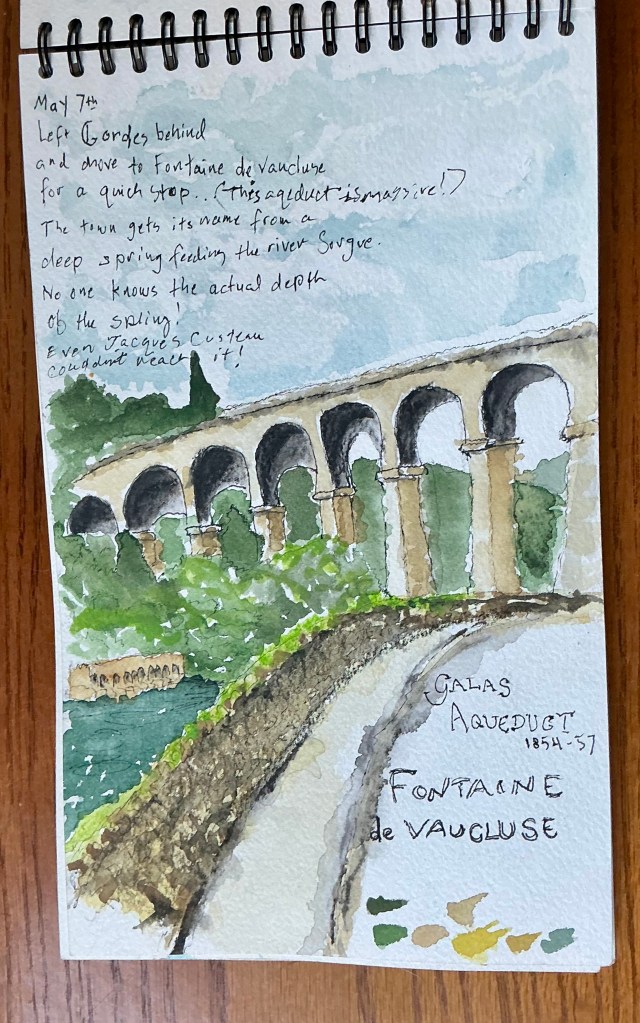 May 7th
Left Gordes behind
and drove to Fontaine de Vaucluse
for a quick stop.. (This aqeduct is massive!)
The town gets its name from a
deep spring feeding the river Sorgue.
No one knows the actual depth
of the spring!
Even Jacques Custeau
couddnt reach it!
GALAS
AQUEDUCT
1854-57
FONTAINE
de VAUCLUSE